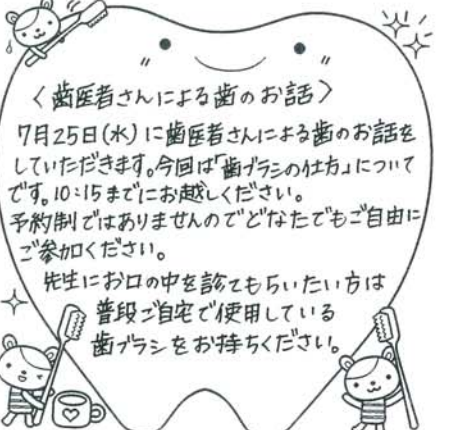 〈歯医者さんによる歯のお話〉
7月25日(水)に歯医者さんによる歯のお話を
していただきます。今回は「歯ブラシの仕方」について
です。10:15までにお越しください。
予約制ではありませんのでどなたでもご自由に
ご参加ください。
先生にお口の中を診てもらいたい方は
普段ご自宅で使用している
歯ブラシをお持ちください。